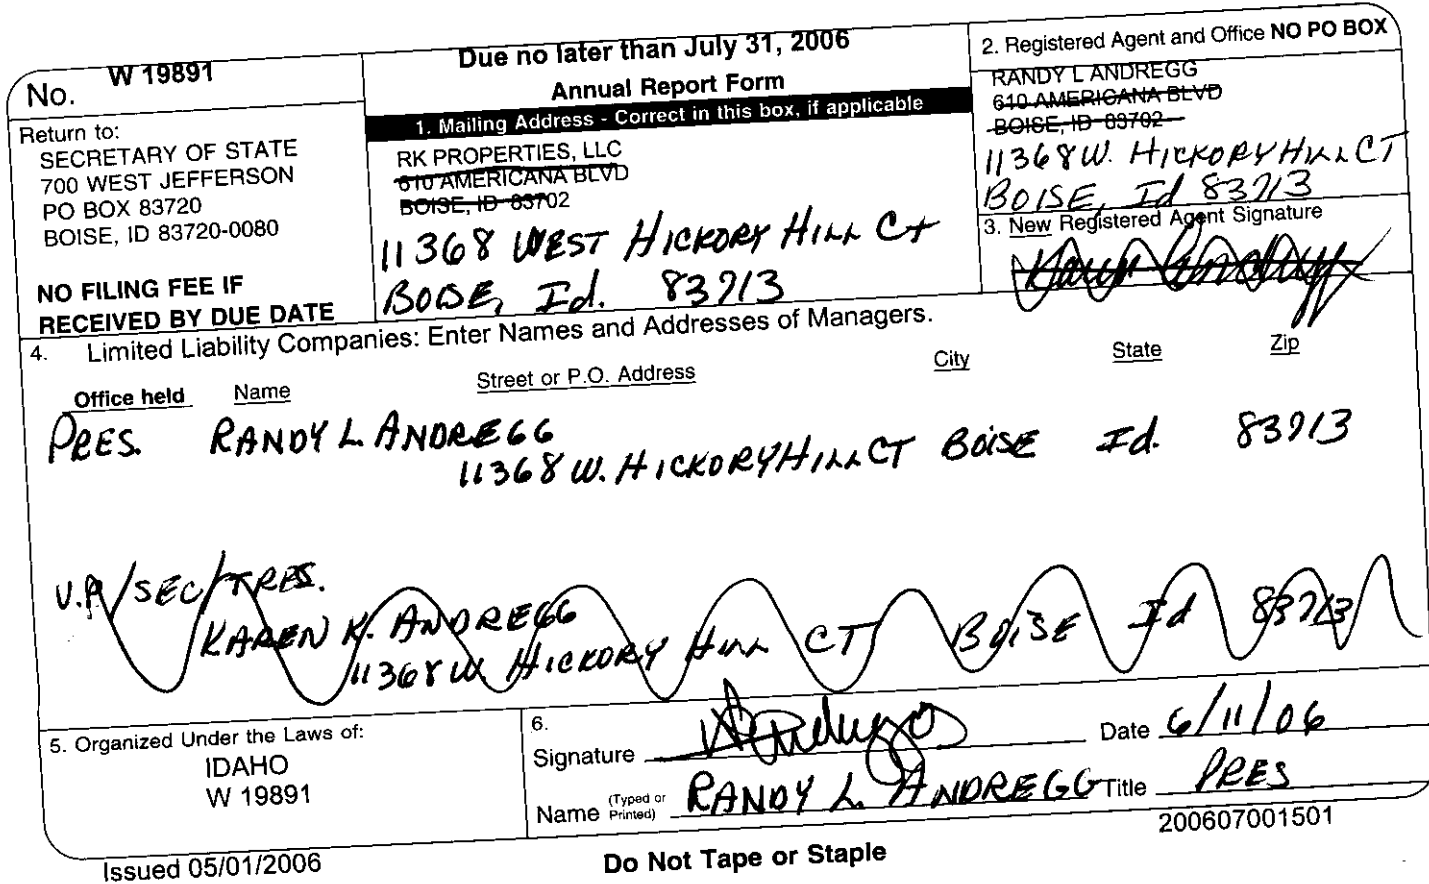 No. W 19891
Return to:
SECRETARY OF STATE
700 WEST JEFFERSON
PO BOX 83720
BOISE, ID 83720-0080
NO FILING FEE IF
RECEIVED BY DUE DATE
Due no later than July 31, 2006
Annual Report Form
1. Mailing Address - Correct in this box, if applicable
RK PROPERTIES, LLC
610 AMERICANA BLVD
BOISE, ID 83702
11368 WEST HICKORY HILL CT
BOISE, Id. 83713
2. Registered Agent and Office NO PO BOX
RANDY L ANDREGG
610 AMERICANA BLVD
BOISE, ID 83702
11368 W. HICKORY HILL CT
BOISE, Id 83713
3. New Registered Agent Signature
4. Limited Liability Companies: Enter Names and Addresses of Managers.
Office held Name Street or P.O. Address City State Zip
PRES. RANDY L ANDREGG
11368 W. HICKORY HILL CT BOISE Id. 83713
V.P/SEC/TRES.
KAREN K. ANDREGG
11368 W. HICKORY HILL CT BOISE Id 83713
5. Organized Under the Laws of:
IDAHO
W 19891
6.
Signature Date 6/11/06
Name (Typed or Printed) RANDY L. ANDREGG Title PRES
200607001501
Issued 05/01/2006
Do Not Tape or Staple